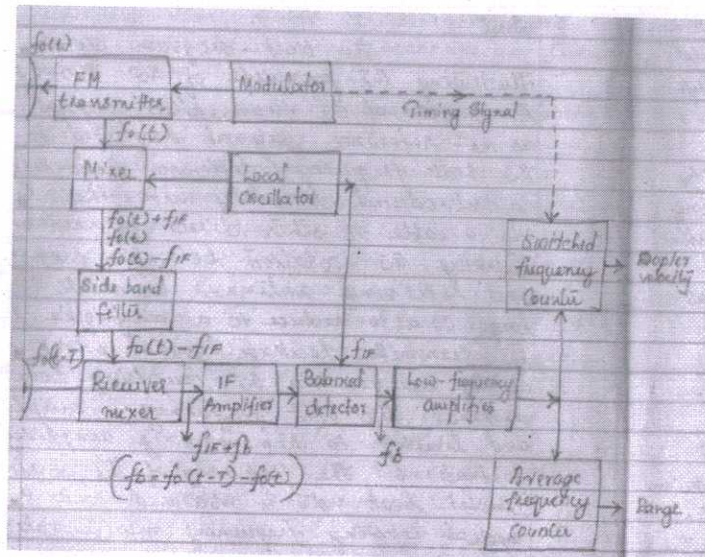 fo(t)
FM
transmitter
Modulator
Timing Signal
fo(t)
Mixer
Local
oscillator
fo(t)+fIF
fo(t)
fo(t)-fIF
Side band
filter
Switched
frequency
Counter
Doppler
velocity
fo(t)-fIF
fIF
fo(t-T)
Receiver
mixer
IF
Amplifier
Balanced
detector
Low-frequency
amplifier
fIF+fb
fb
(fb = fo(t-T)-fo(t))
Average
frequency
Counter
Range